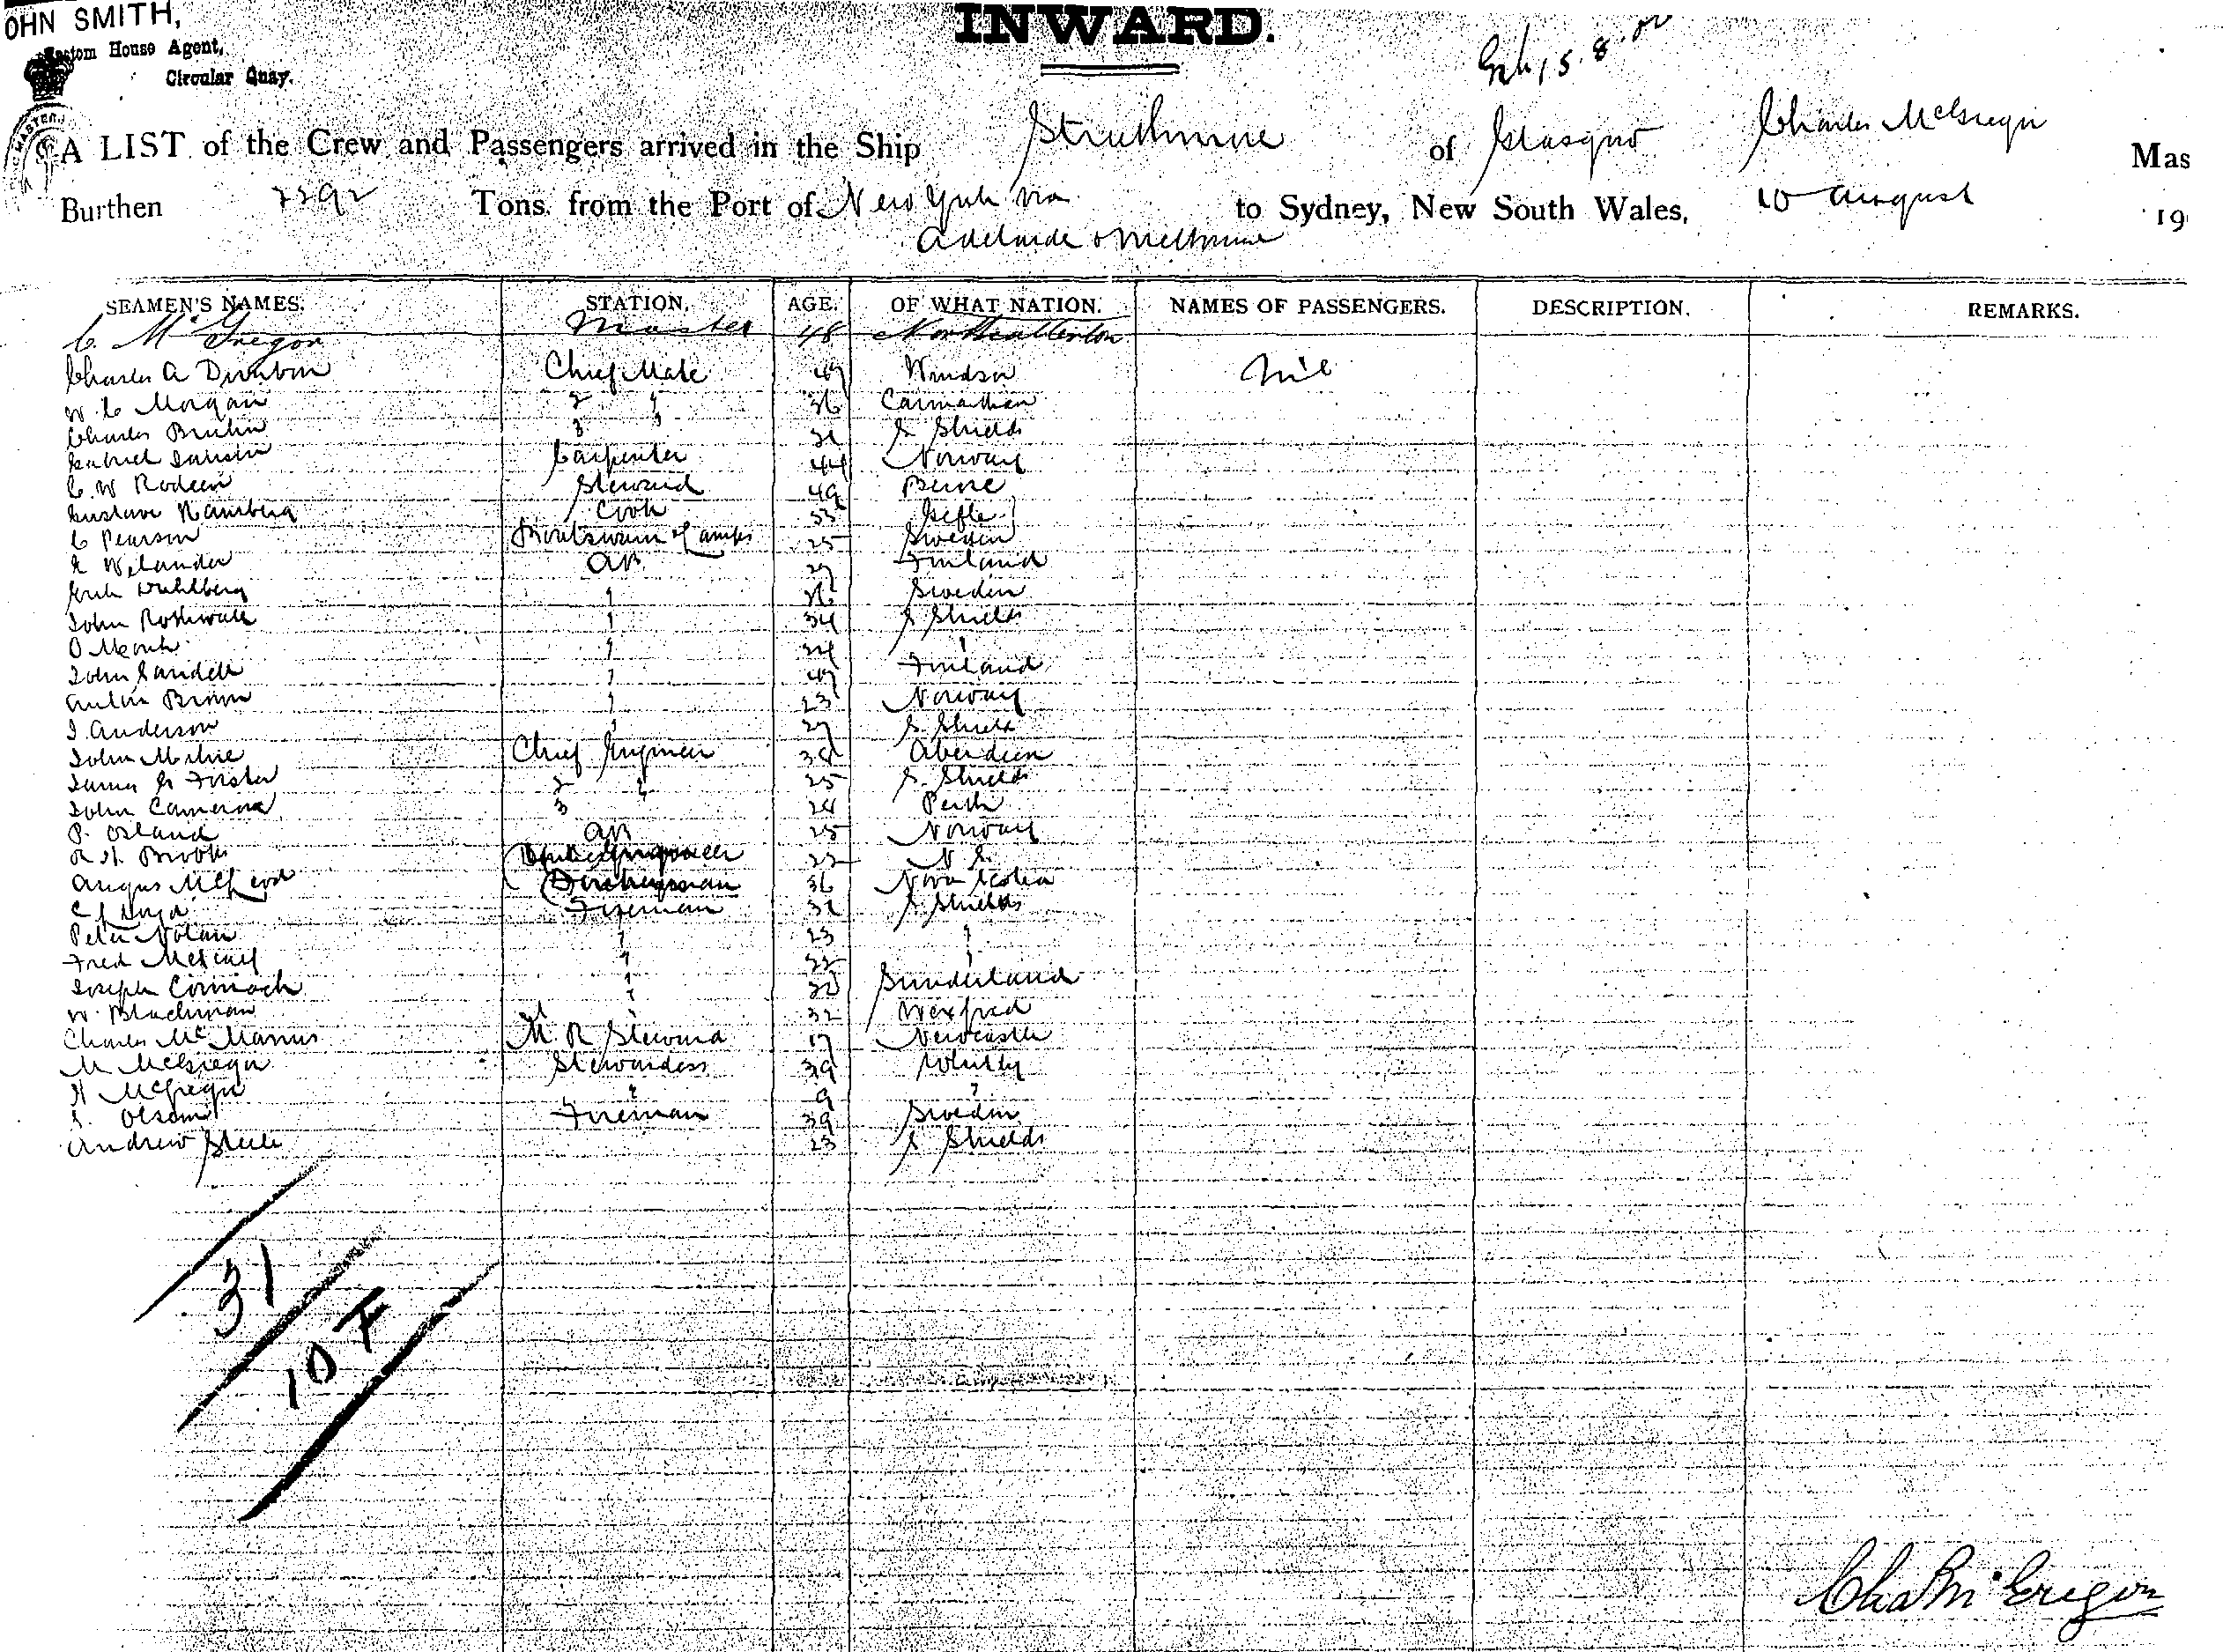 OHN SMITH,
Custom House Agent,
Circular Quay.
INWARD.
15.8.02
A LIST of the Crew and Passengers arrived in the Ship Strathmore of Glasgow Charles McGregor Mas
Burthen 2292 Tons from the Port of New York via to Sydney, New South Wales, 10 August 19
Adelaide & Melbourne
SEAMEN'S NAMES. STATION. AGE. OF WHAT NATION. NAMES OF PASSENGERS. DESCRIPTION. REMARKS.
C. McGregor Master 48 Northallerton
Charles A Chief Mate 47 Windsor Nil
W. C Morgan 2 " 36 Carmarthen
Charles Bruhn 3 " S Shields
Gabriel Carpenter 44 Norway
C. W Rodeen Steward 49
Gustave Ramberg Cook 33 Gefle
C Pearson Boatswain & Lamps 25 Sweden
E Welander AB 27 Finland
Erik Wahlberg " 26 Sweden
John Rothwall " 34 S Shields
O " 24 "
John Sandell " 47 Finland
Anton Brown " 23 Norway
J. Anderson " 27 S. Shields
John Milne Chief Engineer 38 Aberdeen
James G Forster 2 " 25 S. Shields
John Cameron 3 24 Perth
P. Osland AB 25 Norway
R. H. Brooks 22 N S.
Angus McLeod Donkeyman 36 Nova Scotia
Fireman S. Shields
Peter Nolan " 23 "
Fred Metcalf " 22 "
Joseph Cormack " Sunderland
W. Blachman " 32 Wexford
Charles McManus M. R Steward 17 Newcastle
M McGregor Stewardess 39 Whitby
H McGregor " 9 "
S. Olsom Fireman 39 Sweden
Andrew Steele 23 S Shields
31
10 F
Chas McGregor